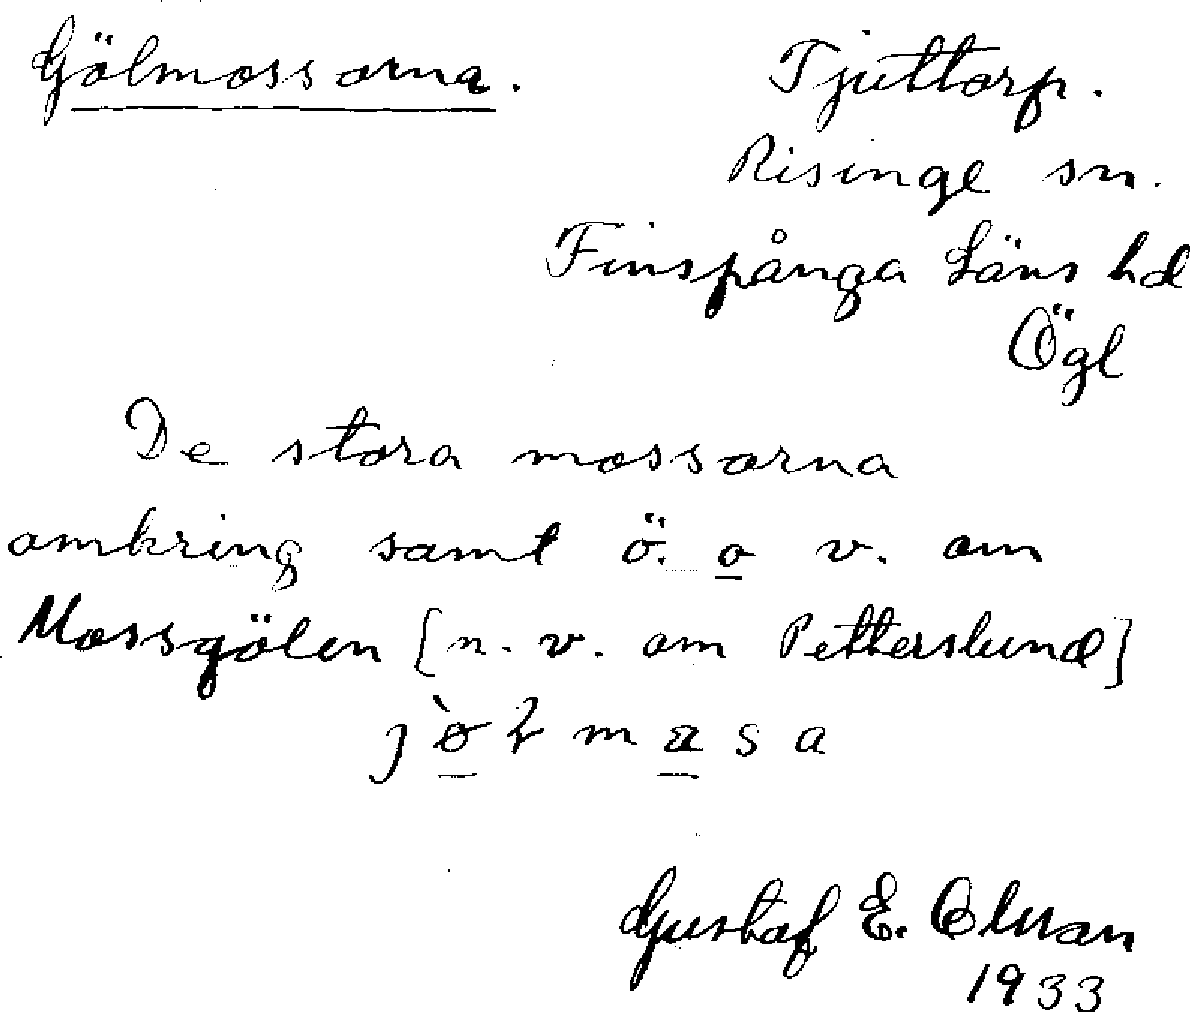 Gölmossarna.
Tjuttorp.
Risinge sn.
Finspånga Läns hd
Ögl
De stora mossarna
omkring samt ö. o v. om
Mossgölen [n. v. om Petterslund]
Gustaf E. Olman
1933